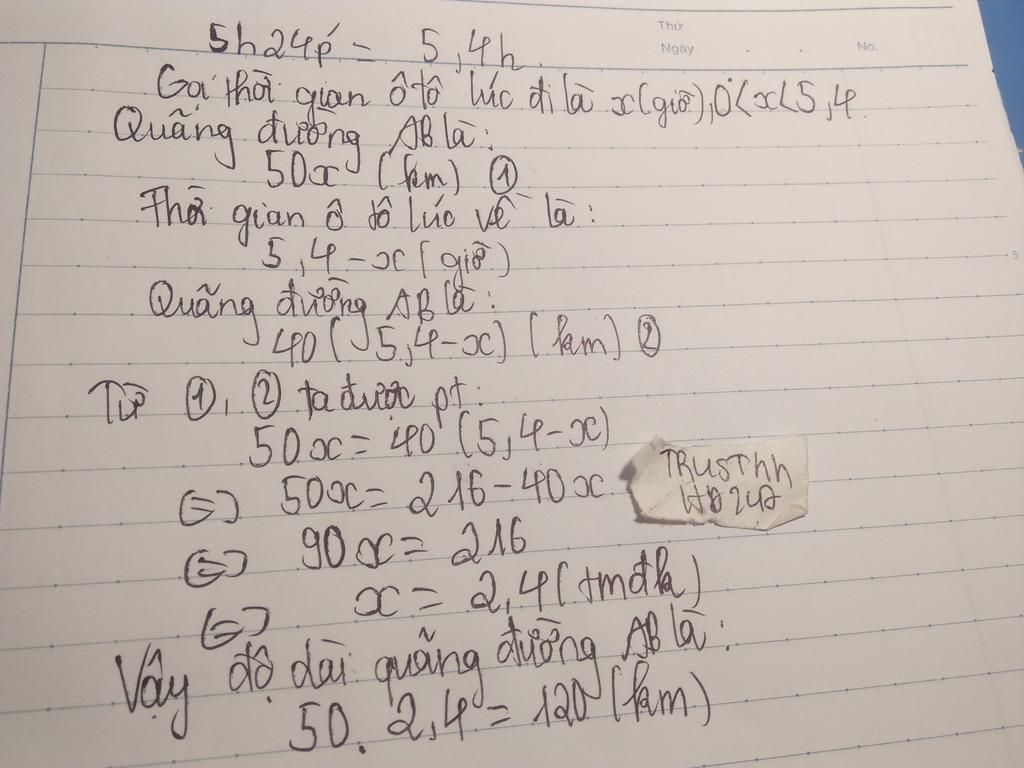 Thứ
Ngày . . No.
5h24p' = 5,4h.
Gọi thời gian ô tô lúc đi là x(giờ), 0<x<5,4
Quãng đường AB là:
50x (km) ①
Thời gian ô tô lúc về là:
5,4-x (giờ)
Quãng đường AB là:
40(5,4-x) (km) ②
Từ ①, ② ta được pt:
50x = 40 (5,4-x)
(=) 50x = 216 - 40x
(=) 90x = 216
(=) x = 2,4 (tmđk)
Vậy độ dài quãng đường AB là:
50. 2,4 = 120 (km)
TRUSThh